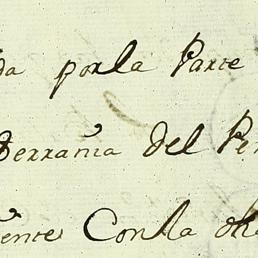 da porla Parte
Serrania del Pe
ente Conla dha